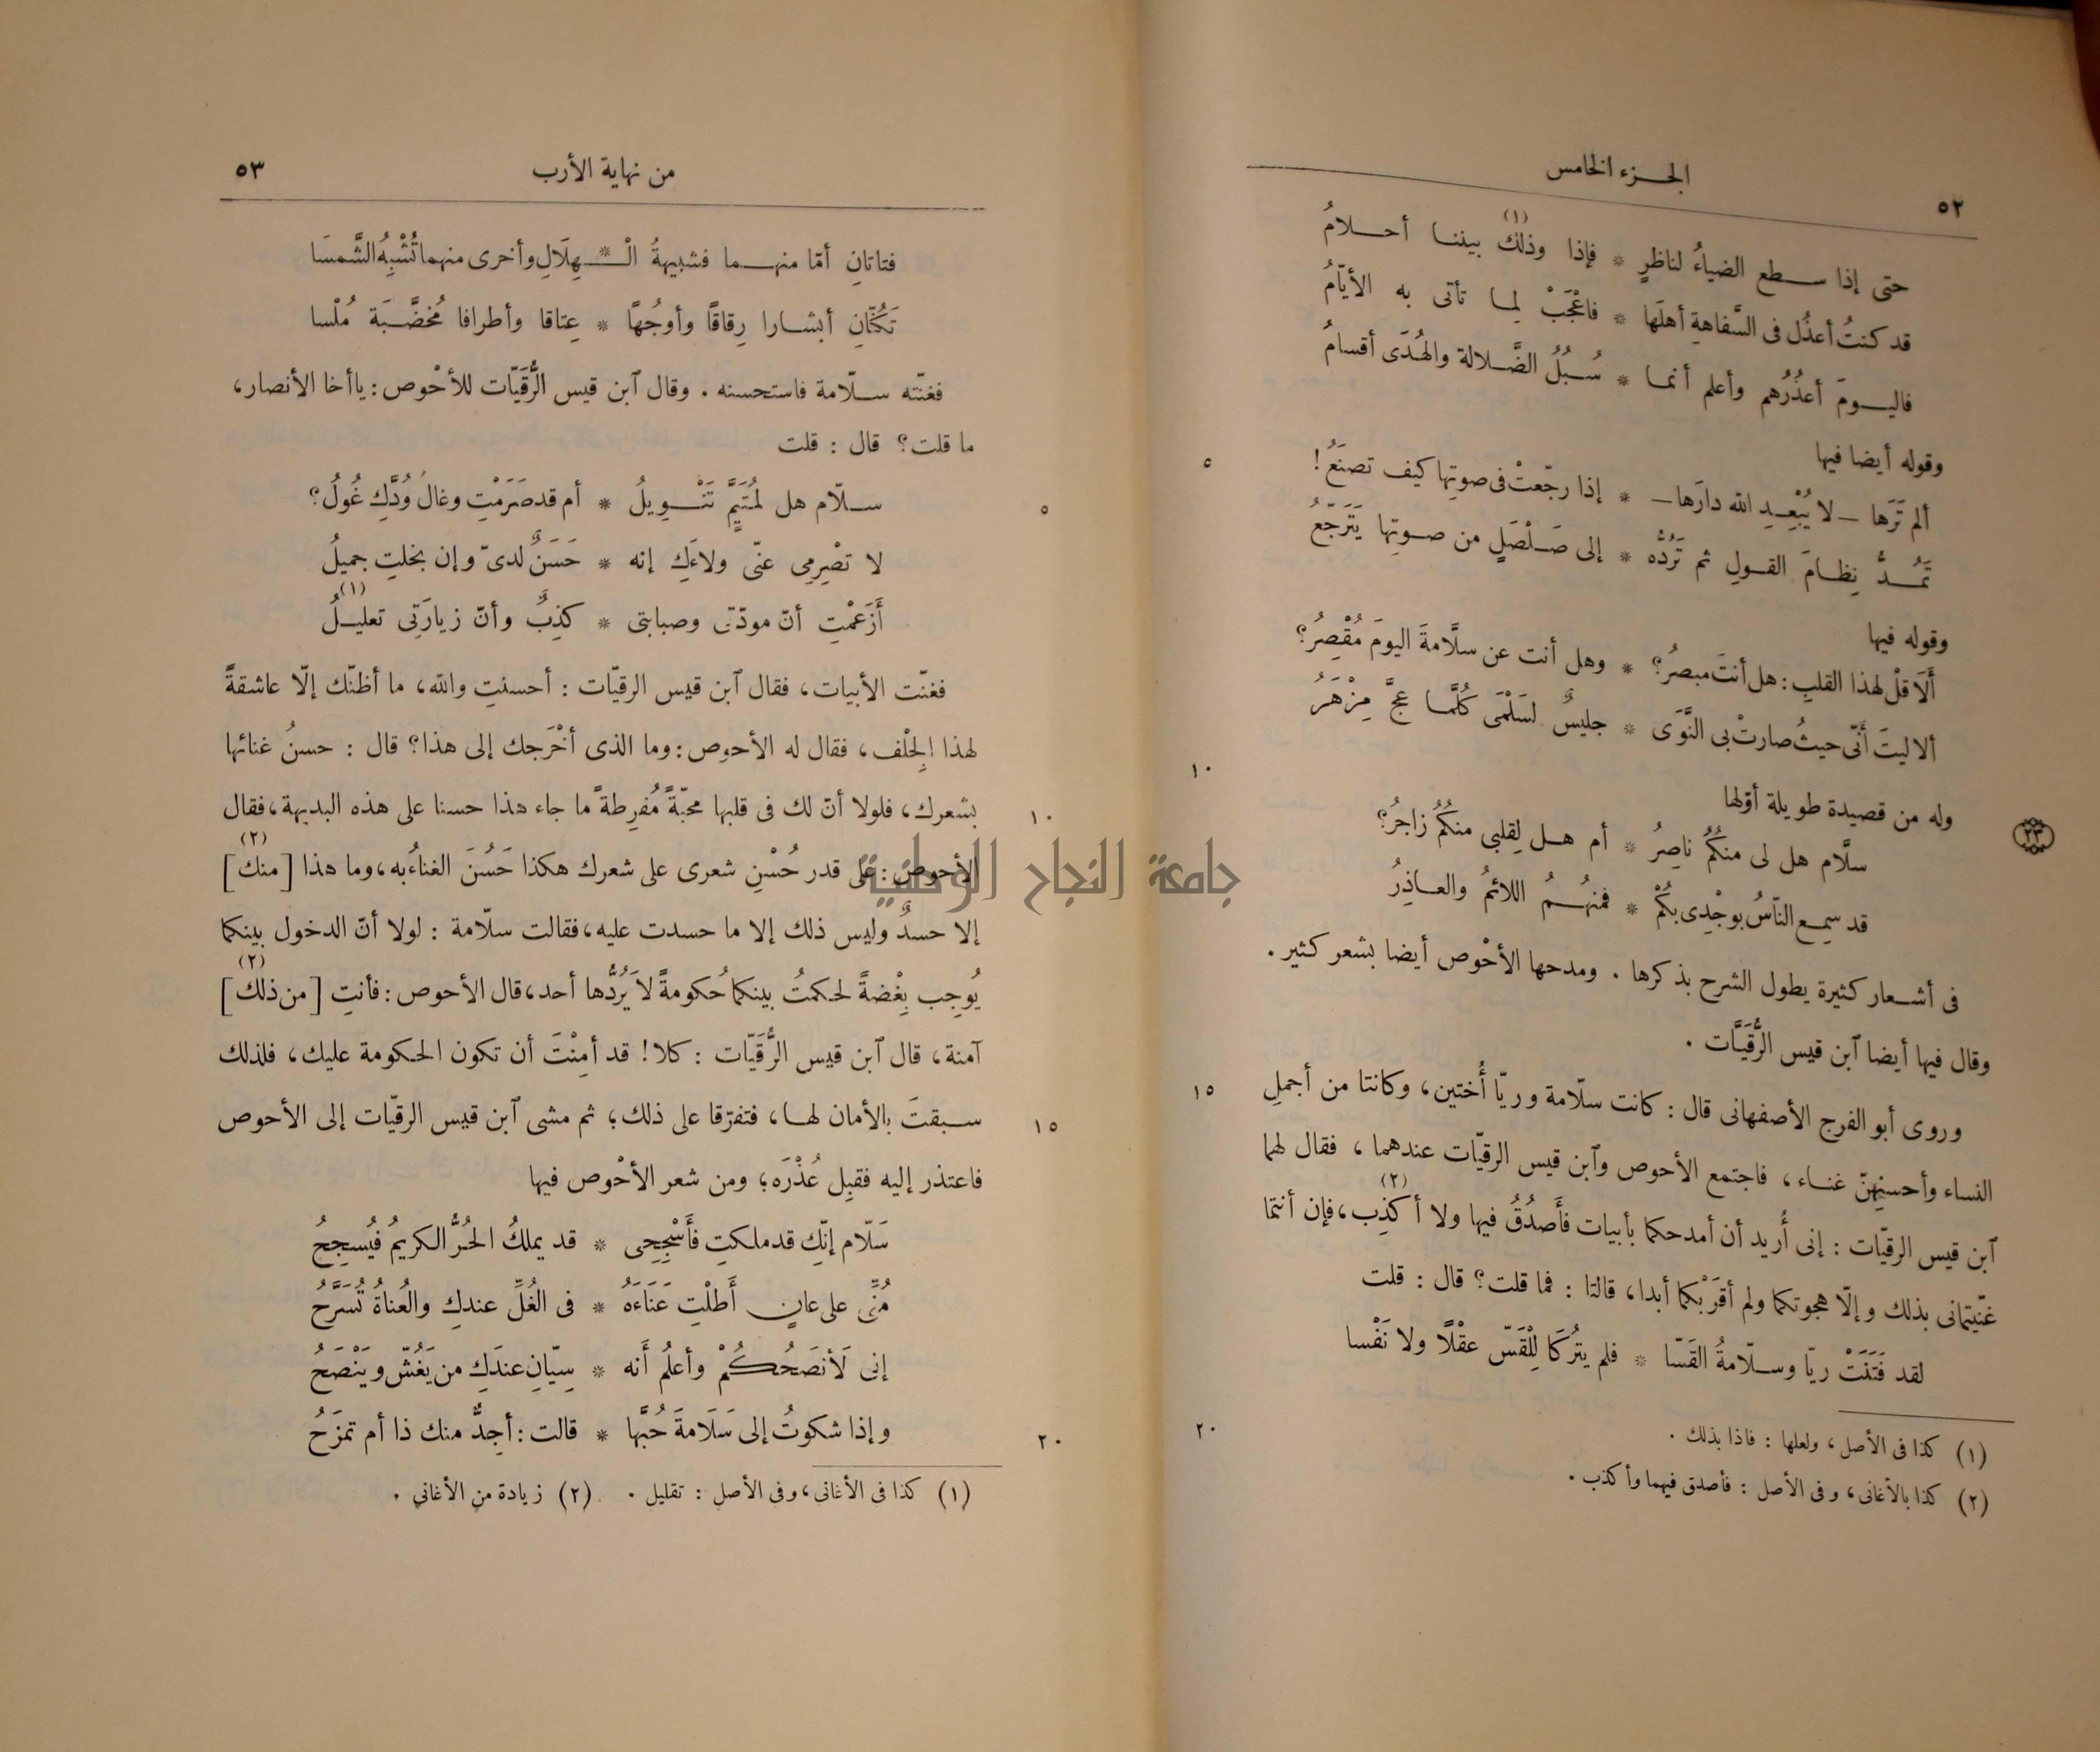 ٥٢
الجزء الخامس
حتى إذا سطع الضياءُ لناظرٍ * فإذا وذلك (١) بيننا أحلامُ
قد كنتُ أعذُل فى السَّفاهةِ أهلَها * فاعْجَبْ لِما تأتى به الأيّامُ
فاليومَ أعذُرُهم وأعلم أنما * سُبُلُ الضَّلالة والهُدَى أقسامُ
وقوله أيضا فيها
٥
ألم تَرَها — لا يُبْعِدِ الله دارَها — * إذا رجّعتْ فى صوتِها كيف تصنَعُ !
تَمُدُّ نِظامَ القولِ ثم تَرُدُّه * إلى صَلْصَلٍ من صوتِها يَتَرجّعُ
وقوله فيها
أَلَا قلْ لهذا القلبِ : هل أنتَ مبصرُ؟ * وهل أنت عن سلَّامةَ اليومَ مُقْصِرُ؟
ألا ليتَ أنّى حيثُ صارتْ بى النَّوَى * جليسٌ لسَلْمَى كُلَّما عجَّ مِزْهَرُ
١٠
وله من قصيدة طويلة أوّلها
٢٣
سلَّام هل لى منكُمُ ناصِرُ * أم هل لِقلبى منكُمُ زاجرُ؟
قد سمِع النّاسُ بوجْدِى بكُمْ * فمنهُمُ اللائمُ والعاذِرُ
فى أشعار كثيرة يطول الشرح بذكرها . ومدحها الأحْوص أيضا بشعر كثير .
وقال فيها أيضا آبن قيس الرُّقَيَّات .
وروى أبو الفرج الأصفهانى قال : كانت سلّامة وريّا أُختين، وكانتا من أجملِ
١٥
النساء وأحسنِهنّ غناء، فاجتمع الأحوص وآبن قيس الرقيّات عندهما، فقال لهما
آبن قيس الرقيّات : إنى أُريد أن أمدحكما بأبيات فأَصدُقُ فيها ولا أكذِب (٢)، فإن أنتما
غنّيتمانى بذلك وإلّا هجوتكما ولم أقرَبْكما أبدا، قالتا : فما قلت؟ قال : قلت
لقد فَتَنَتْ ريّا وسلّامةُ القَسّا * فلم يتْرُكَا لِلْقَسّ عقْلًا ولا نَفْسا
٢٠
(١) كذا فى الأصل، ولعلها : فاذا بذلك .
(٢) كذا بالأغانى، وفى الأصل : فأصدق فيهما وأكذب .
من نهاية الأرب
٥٣
فتاتانِ أمّا منهما فشبيهةُ الْ * هِلَالِ وأخرى منهما تُشْبِهُ الشَّمسَا
تَكُنّانِ أبشارا رِقاقًا وأوجُهًا * عِتاقا وأطرافا مُخضَّبَة مُلْسا
فغنّته سلّامة فاستحسنه . وقال آبن قيس الرُّقَيّات للأحْوص : ياأخا الأنصار،
ما قلت؟ قال : قلت
سلّام هل لمُتَيَّمٍ تَنْويلُ * أم قد صَرَمْتِ وغالَ وُدَّكِ غُولُ؟
٥
لا تصْرِمِى عنّى ولاءَكِ إنه * حَسَنٌ لدىّ وإن بخلتِ جميلُ
أَزَعَمْتِ أنّ مودّتى وصبابتى * كذِبٌ وأنّ زيارَتِى تعليلُ (١)
فغنّت الأبيات، فقال آبن قيس الرقيّات : أحسنتِ والله، ما أظنّك إلّا عاشقةً
لهذا الِحلْف، فقال له الأحوص : وما الذى أخْرَجك إلى هذا؟ قال : حسنُ غنائها
بشعرك، فلولا أنّ لك فى قلبها محبّةً مُفرِطةً ما جاء هذا حسنا على هذه البديهة، فقال
١٠
الأحوص : على قدر حُسْنِ شعرى على شعرك هكذا حَسُنَ الغناءُ به، وما هذا [منك] (٢)
إلا حسدٌ وليس ذلك إلا ما حسدت عليه، فقالت سلّامة : لولا أنّ الدخول بينكما
يُوجِب بِغْضةً لحكمتُ بينكما حُكومةً لا يَرُدُّها أحد، قال الأحوص : فأنتِ [من ذلك] (٢)
آمنة، قال آبن قيس الرُّقَيّات : كلا! قد أمِنْتَ أن تكون الحكومة عليك، فلذلك
سبقتَ بالأمان لها، فتفرّقا على ذلك؛ ثم مشى آبن قيس الرقيّات إلى الأحوص
١٥
فاعتذر إليه فقبِل عُذْرَه؛ ومن شعر الأحْوص فيها
سَلّام إنّكِ قد ملكتِ فأَسْجِحِى * قد يملكُ الحُرُّ الكريمُ فيُسجِحُ
مُنِّى على عانٍ أَطلْتِ عَنَاءَهُ * فى الغُلِّ عندكِ والعُناةُ تُسَرَّحُ
إنى لَأنصَحُكُمْ وأعلمُ أنه * سِيّانِ عندَكِ من يَغُشّ ويَنْصَحُ
وإذا شكوتُ إلى سَلَامةَ حُبَّها * قالت : أجِدٌّ منك ذا أم تمزَحُ
٢٠
(١) كذا فى الأغانى، وفى الأصل : تقليل . (٢) زيادة من الأغانى .
جامعة النجاح الوطنية